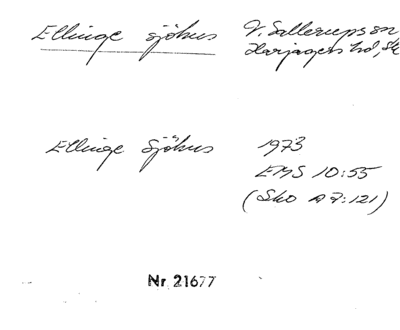 Ellinge sjöhus V. Sallerups sn
Harjagers hd, Sk
Ellinge Sjöhus 1973
EMS 10:55
(Sko A 7:121)
Nr. 21677